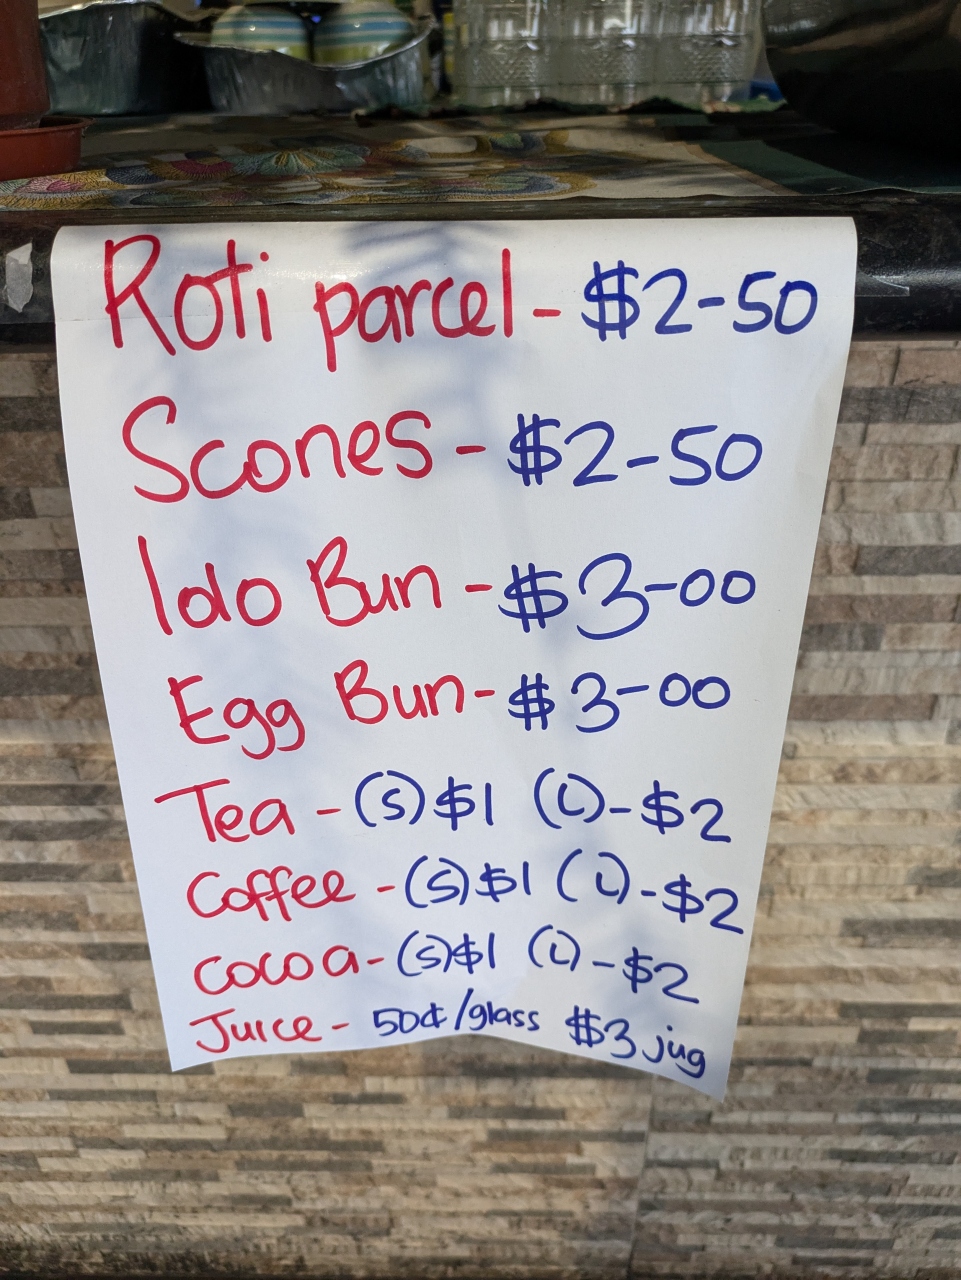 Roti parcel - $2-50
Scones - $2-50
Lolo Bun - $3-00
Egg Bun - $3-00
Tea - (S) $1 (L) - $2
Coffee - (S) $1 (L) - $2
Cocoa - (S) $1 (L) - $2
Juice - 50¢/glass $3 jug